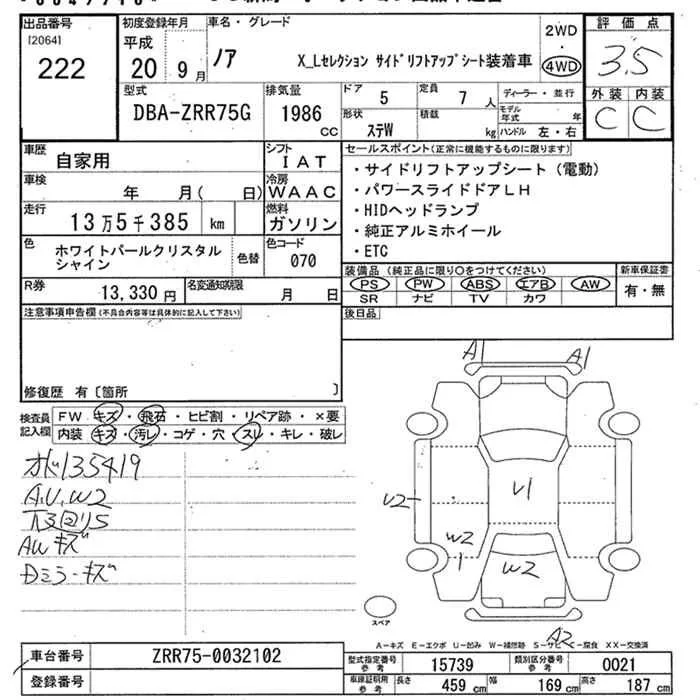 出品番号 [2064] 222
初度登録年月 平成 20 9月
車名・グレード ノア X_Lセレクション サイドリフトアップシート装着車
2WD ・ 4WD
評価点 3.5
外装 内装
C C
型式 DBA-ZRR75G
排気量 1986 CC
ドア 5
定員 7 人
ディーラー・並行
形状 ステW
積載 kg
モデル年式 年
ハンドル 左・右
車歴 自家用
シフト IAT
車検 年 月( 日)
冷房 WAAC
走行 13万5千385 km
燃料 ガソリン
色 ホワイトパールクリスタルシャイン
色替
色コード 070
R券 13,330 円
名変通知期限 月 日
セールスポイント(正常に機能するものに限ります)
・サイドリフトアップシート(電動)
・パワースライドドアLH
・HIDヘッドランプ
・純正アルミホイール
・ETC
装備品(純正品に限り○をつけてください)
PS PW ABS エアB AW
SR ナビ TV カワ
新車保証書
有・無
後日品
注意事項申告欄(不具合内容等は具体的に記入して下さい)
修復歴 有〔箇所 〕
検査員記入欄
FW キズ・飛石・ヒビ割・リペア跡・×要
内装 キズ・汚レ・コゲ・穴・スレ・キレ・破レ
135419
A.U.W2
AWキズ
Dミラーキズ
A1 A1
U2
U1
W2
1
W2
A2
スペア
A-キズ E-エクボ U-凹み W-補修跡 S-サビ C-腐食 XX-交換済
車台番号 ZRR75-0032102
登録番号
型式指定番号 参考 15739
類別区分番号 参考 0021
車庫証明用 参考 長さ 459 cm 幅 169 cm 高さ 187 cm